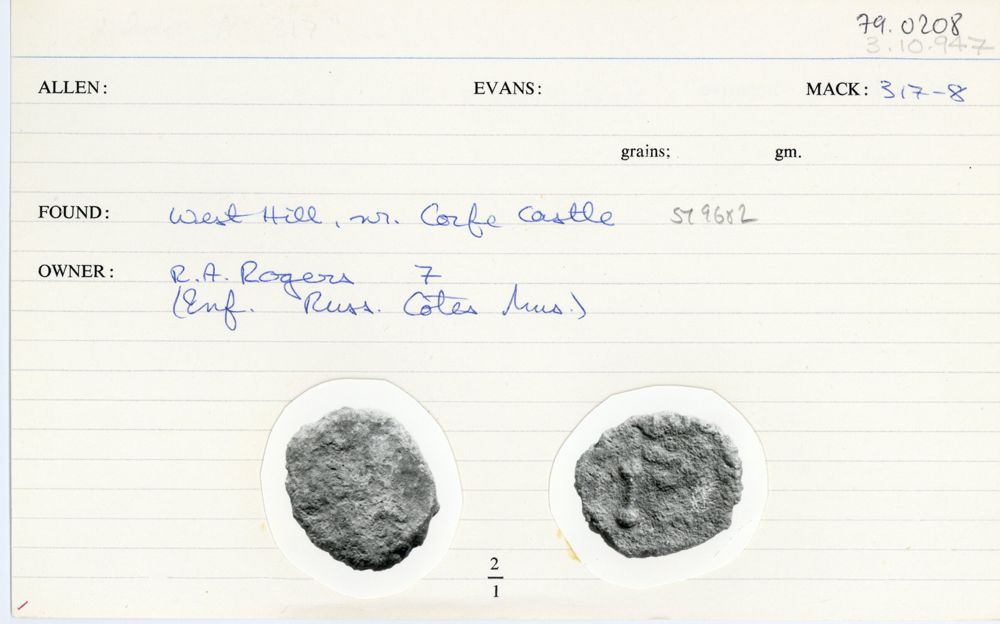 79.0208
3.10.947
ALLEN: EVANS: MACK: 317-8
grains; gm.
FOUND: West Hill, nr. Corfe Castle SY 9682
OWNER: R.A. Rogers 7
(Enf. Russ. Côtes Mus.)
2
1